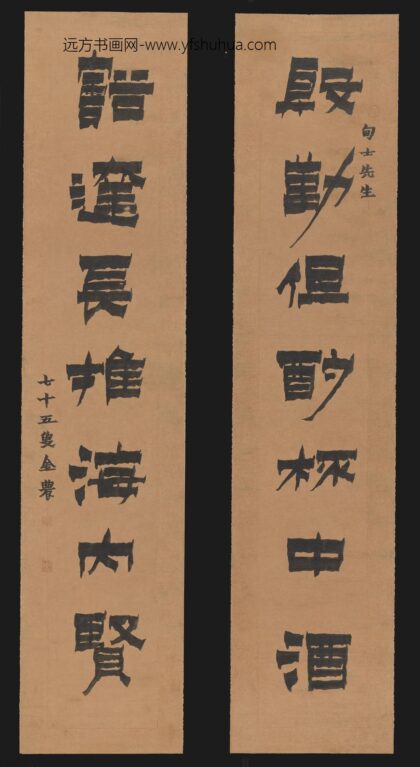 远方书画网-www.yfshuhua.com
殷勤但酌杯中酒
士先生
豁達長推海内賢
七十五叟金農